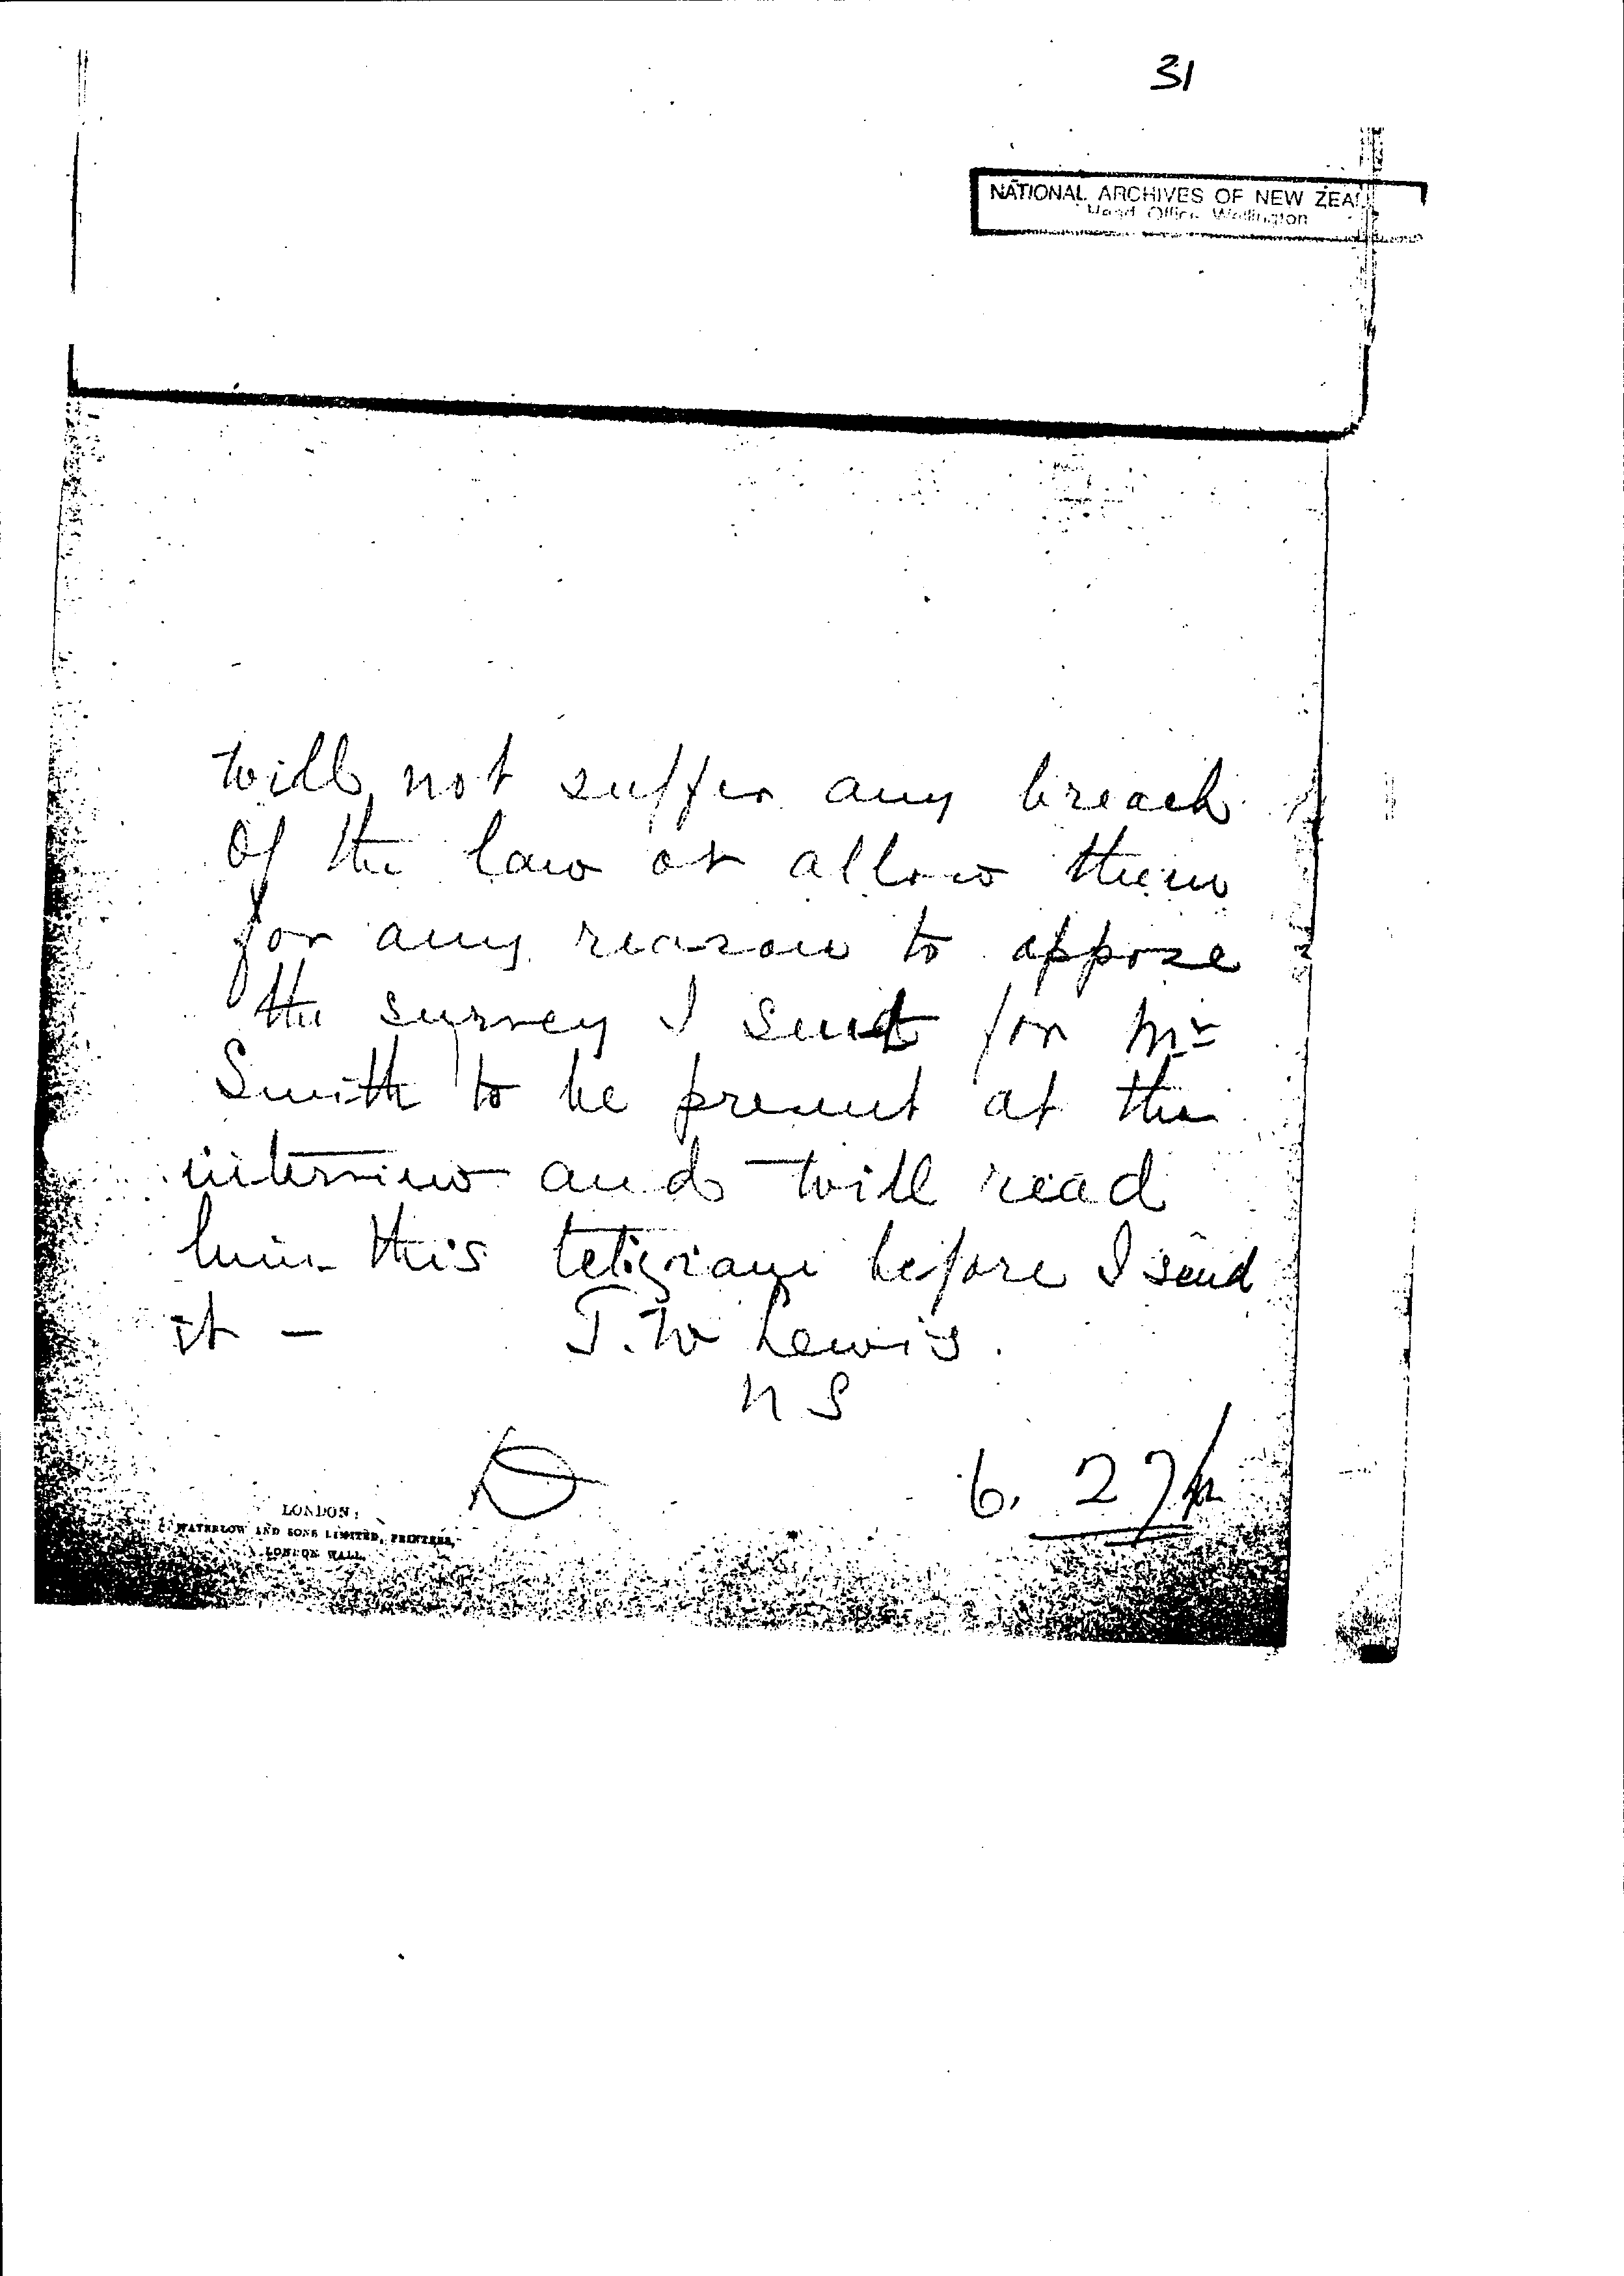 31
NATIONAL ARCHIVES OF NEW ZEAL
Head Office Wellington
will not suffer any breach
of the law or allow them
for any reason to oppose
the survey I sent for Mr
Smith to be present at the
interview and will read
him this telegram before I send
it - T. W Lewis.
N S
6. 27p
LONDON:
WATERLOW AND SONS LIMITED, PRINTERS,
LONDON WALL.